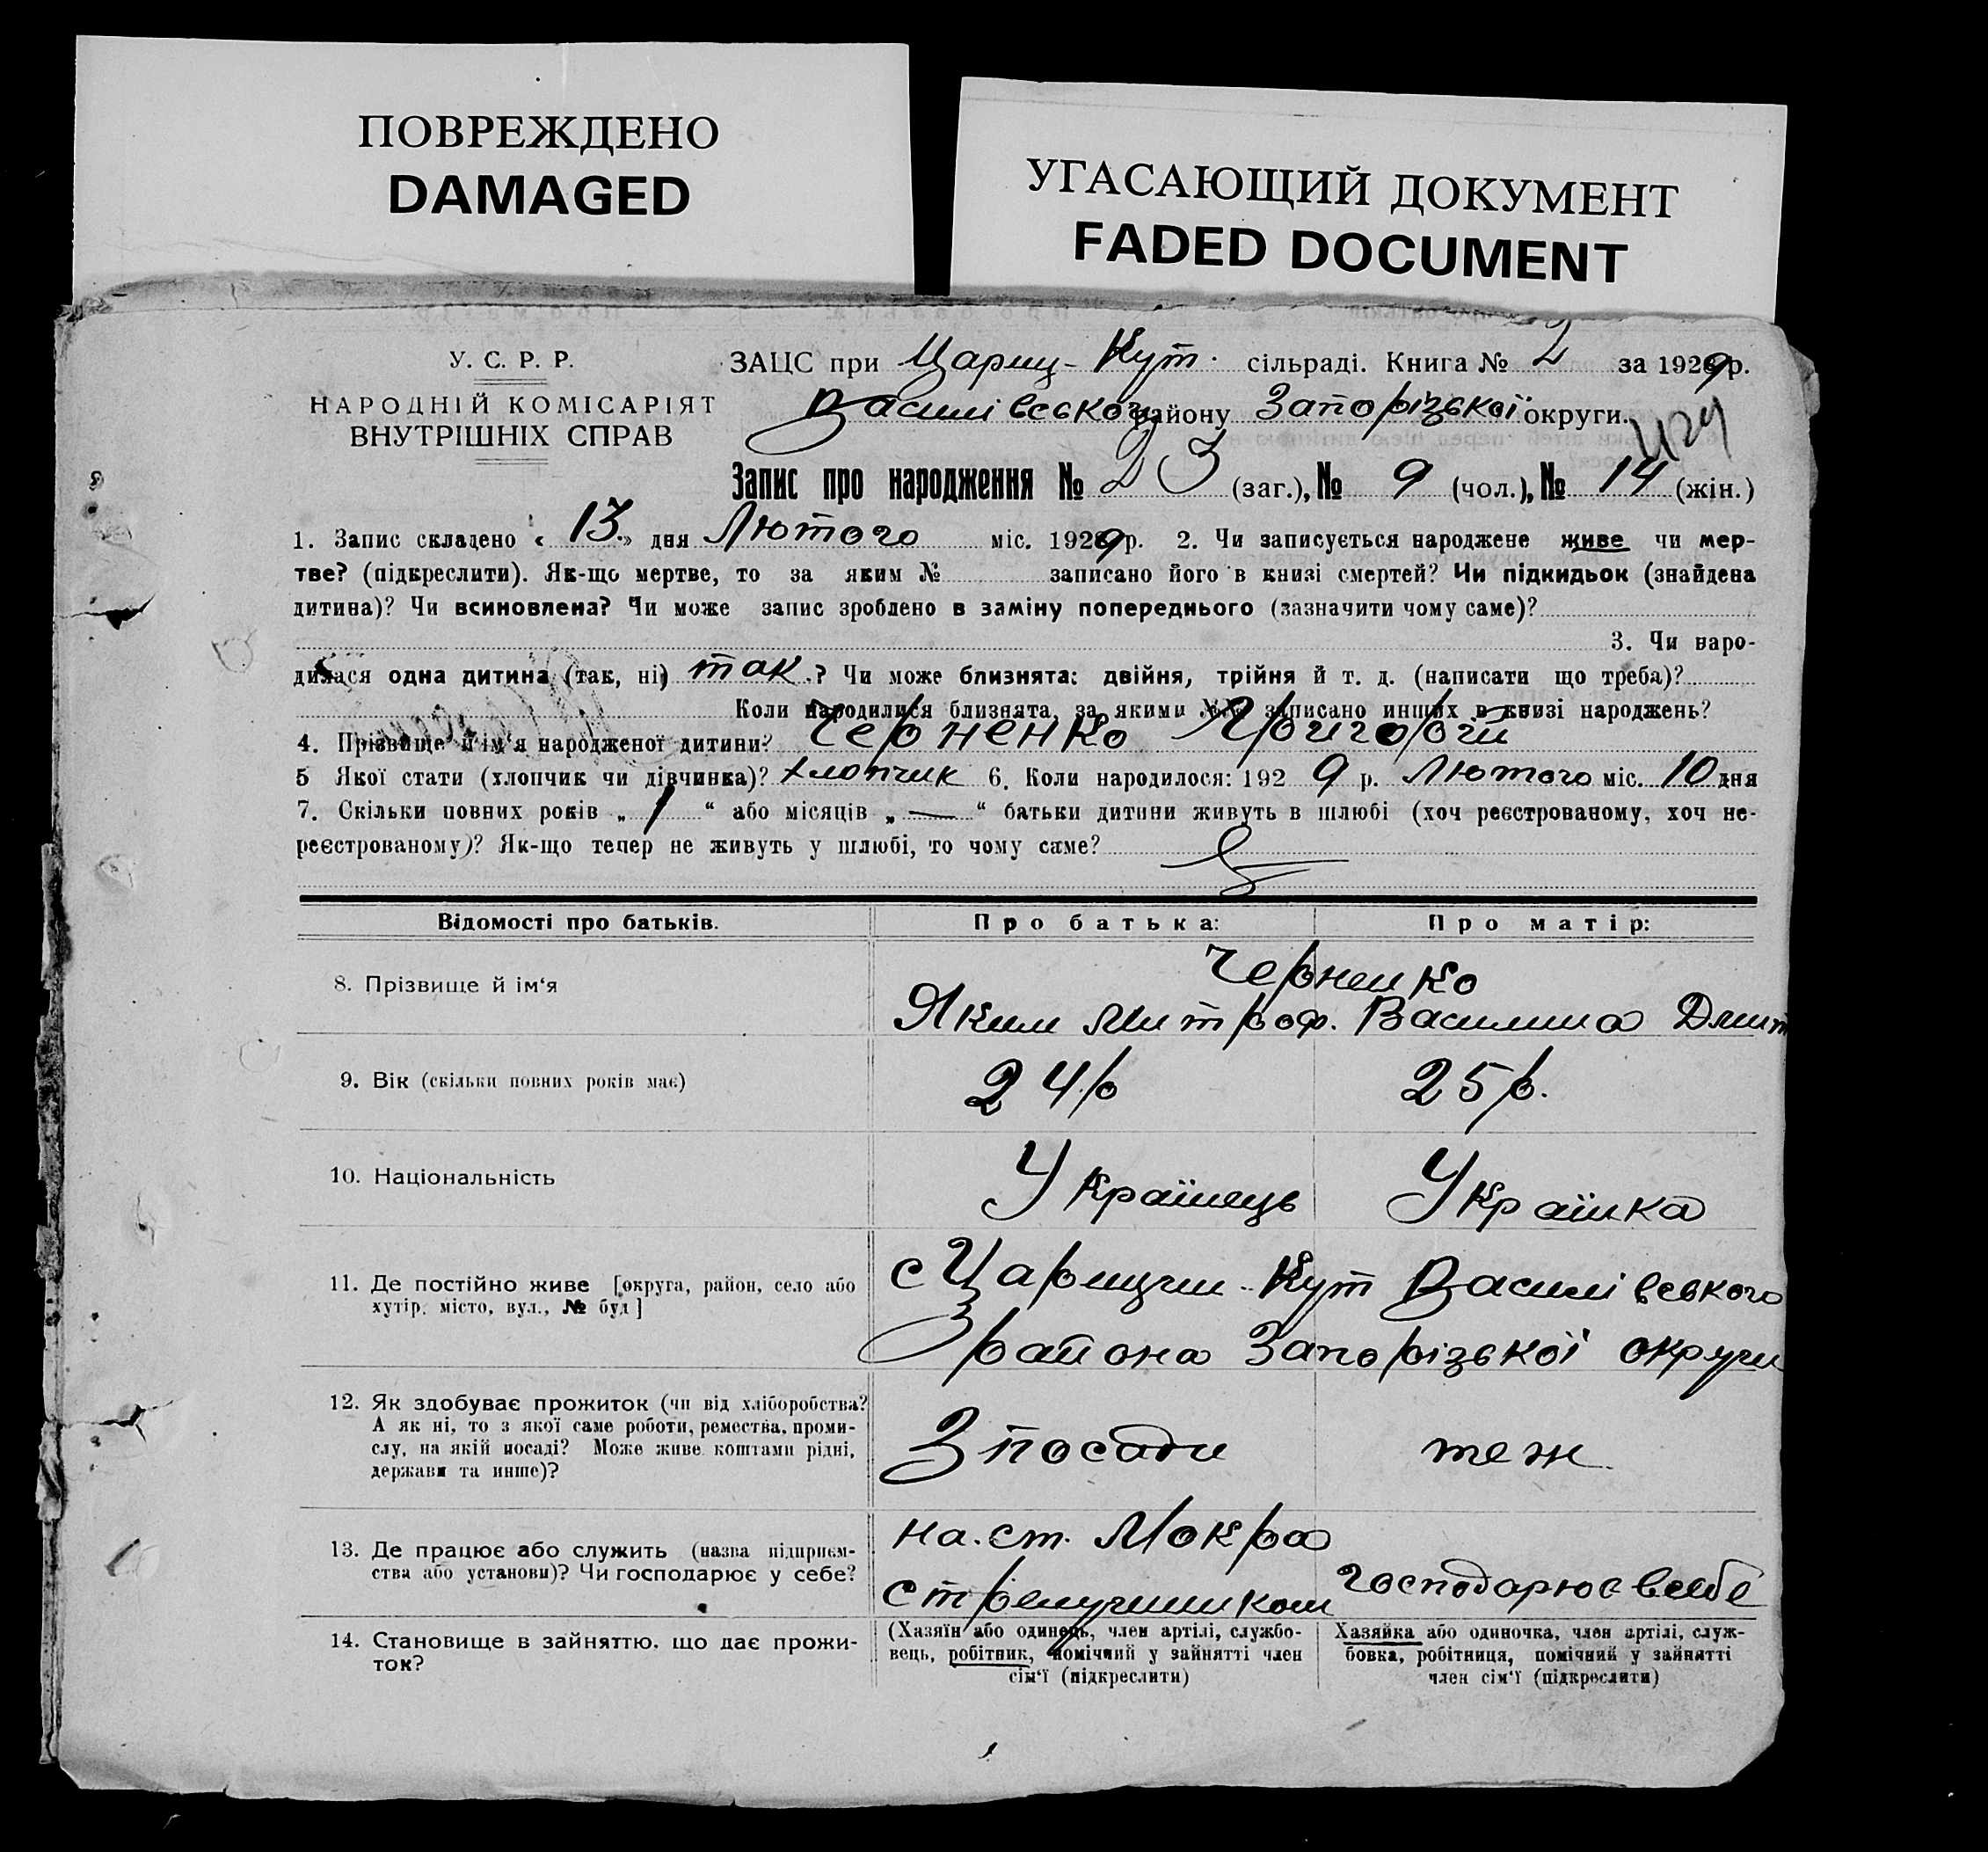 ПОВРЕЖДЕНО
DAMAGED
УГАСАЮЩИЙ ДОКУМЕНТ
FADED DOCUMENT
У. С. Р. Р.
НАРОДНІЙ КОМІСАРІЯТ
ВНУТРІШНІХ СПРАВ
ЗАЦС при Цариц-Кут. сільраді. Книга № 2 за 1929 р.
Василівського району Запорізької округи.
429
Запис про народження № 23 (заг.), № 9 (чол.), № 14 (жін.)
1. Запис складено « 13. » дня Лютого міс. 1929 р. 2. Чи записується народжене живе чи мер-
тве? (підкреслити). Як-що мертве, то за яким № записано його в книзі смертей? Чи підкидьок (знайдена
дитина)? Чи всиновлена? Чи може запис зроблено в заміну попереднього (зазначити чому саме)?
3. Чи наро-
дилася одна дитина (так, ні) так.? Чи може близнята: двійня, трійня й т. д. (написати що треба)?
Коли народилися близнята, за якими №№ записано инших в книзі народжень?
4. Прізвище й ім'я народженої дитини? Черненко Григорій
5 Якої стати (хлопчик чи дівчинка)? хлопчик 6. Коли народилося: 192 9 р. Лютого міс. 10 дня
7. Скільки повних років „ 1 “ або місяців „ — “ батьки дитини живуть в шлюбі (хоч реєстрованому, хоч не-
реєстрованому)? Як-що тепер не живуть у шлюбі, то чому саме?
Відомості про батьків. Про батька: Про матір:
8. Прізвище й ім‘я Черненко
Яким Митроф. Василина Дмит
9. Вік (скільки повних років має) 24 р 25 р.
10. Національність Українець Українка
11. Де постійно живе [округа, район, село або
хутір, місто, вул., № буд]
с Царицин-Кут Василівського
района Запорізької округи
12. Як здобуває прожиток (чи від хліборобства?
А як ні, то з якої саме роботи, ремества, проми-
слу, на якій посаді? Може живе коштами рідні,
держави та инше)?
З посади теж
13. Де працює або служить (назва підприєм-
ства або установи)? Чи господарює у себе?
на. ст. Мокра
стрелучником господарює в себе
14. Становище в зайняттю, що дає прожи-
ток?
(Хазяїн або одинець, член артілі, службо-
вець, робітник, помічний у зайнятті член
сім‘ї (підкреслити)
Хазяйка або одиночка, член артілі, служ-
бовка, робітниця, помічний у зайнятті
член сім‘ї (підкреслити)